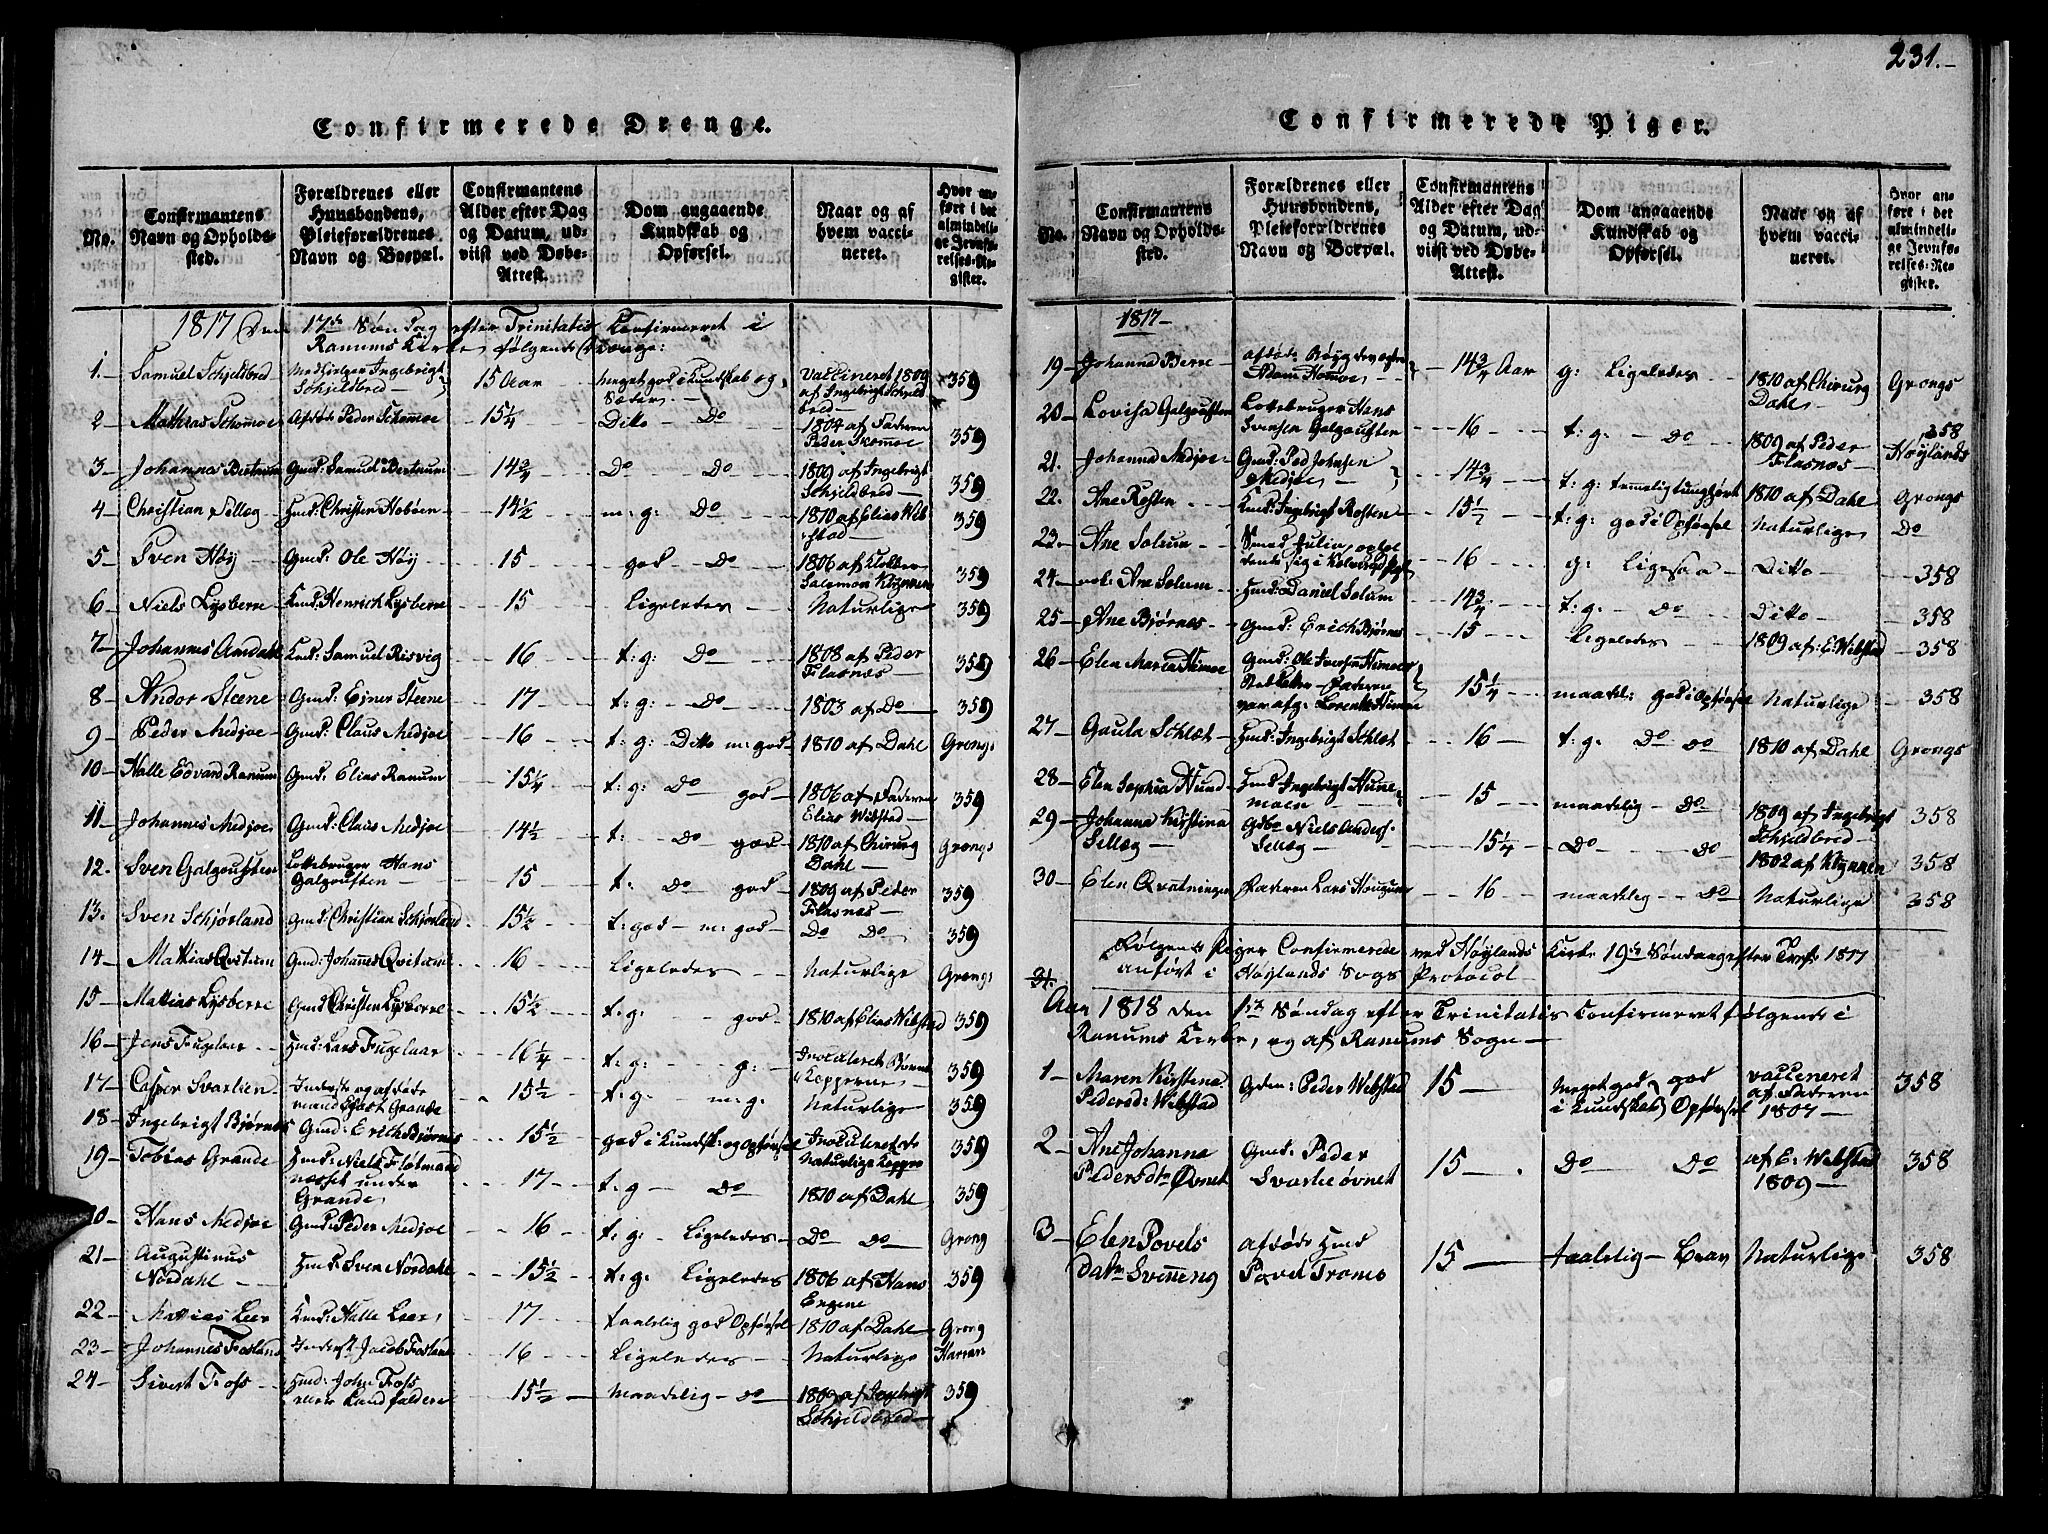 231.
Confirmerede Drenge.
No.
Confirmantens Navn og Opholds-sted.
Forældrenes eller Huusbondens, Pleieforældrenes Navn og Boepæl.
Confirmantens Alder efter Dag og Datum, ud-viist ved Døbe-Attest.
Dom angaaende Kundskab og Opførsel.
Naar og af hvem vacci-neret.
Hvor an-ført i det almindeli-ge Jevnfø-relses-Re-gister.
1817 den 17de Søndag efter Trinitatis Confirmeret i
Ranums Kirke følgende Drenge:
1. Samuel Schjeldbred Medhjelper Ingebrigt Schjeldbred 15 Aar meget god i Kundskab og Sæder Vaccineret 1809 af Ingebrigt Schjeldbred 359
2 Mathias Schomoe Afdøde Peder Schomoe 15 1/4 Ditto Do 1804 af Faderen Peder Skomoe 359
3 Johannes Bertnum Gmd: Samuel Bertnum 14 3/4 Do Do 1809 af Ingebrigt Schjeldbred 359
4 Christian Sellæg Hmd: Christen Hoboen 14 1/2 m: g: Do 1810 af Elias Wibstad 359
5 Sven Høy Gmd: Ole Høy 15 god Do 1806 af Klokker Salomon 359
6 Niels Lysberre Hmd: Henrich Lysberre 15 Ligeledes Naturlige 359
7 Johannes Amdahl Hmd: Samuel Risvig 16 t: g: Do 1808 af Peder Flasnæs 359
8 Andor Steene Gmd: Ejner Steene 17 t: g: Do 1803 af Do 359
9 Peder Medjoe Gmd: Claus Medjoe 16 t: g: Ditto m: god 1810 af Dahl Grongs
10 Halle Edvard Ranum Gmd: Elias Ranum 15 1/4 t: g: Do god 1806 af Faderen Elias Wibstad 359
11 Johannes Medjoe Gmd: Claus Medjoe 14 1/2 t: Do god 1810 af Chirurg Dahl Grongs
12. Sven Galgouften Lottebruger Hans Galgouften 15 t: Do god 1809 af Peder Flasnæs 359
13. Sven Schjørland Gmd: Christian Schjørland 15 1/2 t: god m: god Do Do 359
14 Mathias Qvitum Gmd: Johannes Qvitum 16 Ligeledes Naturlige Grongs
15 Mathias Lysberre Gmd Christen Lysberre 15 1/2 t: g: god 1810 af Elias Wibstad 359
16 Jens Fugelaar Hmd: Lars Fugelaar 16 1/4 t: g: g: Inoculeret Børne Kopperne 359
17 Casper Svarlien Inderste og afdøde mand Grande 15 1/2 t: g: m: g: Naturlige 359
18 Ingebrigt Bjørnes Gmd: Erich Bjørnes 15 1/2 god i Kundsk: og Opførsel Inoculerede Naturlige Koppe 359
19 Tobias Grande Hmd: Niels Fløtmand næsset under Grande 17 t: g Do 1810 af Dahl 359
20 Hans Medjoe Gmd: Peder Medjoe 16 t: g: Ligeledes Do Do Grong
21 Augustinus Nordahl Hmd: Sven Nordahl 15 1/2 t: g: Ligeledes 1806 af Hans 359
22 Mathias Leer Hmd: Halle Leer 17 taalelig god Opførsel 1810 af Dahl Grong
23 Johannes Fosland Inderst Jacob Fosland 16 Ligeledes Naturlige Harran
24 Sivert Foss Hmd: John Foss 15 1/2 maadelig Do 1809 af Ingebrigt Schjeldbred 359
Confirmerede Piger.
No.
Confirmantens Navn og Opholds-sted.
Forældrenes eller Huusbondens, Pleieforældrenes Navn og Boepæl.
Confirmantens Alder efter Dag og Datum, ud-viist ved Døbe-Attest.
Dom angaaende Kundskab og Opførsel.
Naar og af hvem vacci-neret.
Hvor an-ført i det almindeli-ge Jevnfø-relses-Re-gister.
1817
19 Johanna Berre afdøde Adam Homoe 14 3/4 Aar g: Ligeledes 1810 af Chirurg Dahl Grongs
20 Lovisa Galgouften Lottebruger Hans Svensen Galgouften 16 t: g: Do 1809 af Peder Flasnæs 358 Høylands
21. Johanna Medjoe Gmd: Ped Johnsen Medjoe 14 3/4 t: g: temmelig tungført 1810 af Dahl Grongs
22. Ane Rosten Hmd: Ingebrigt Rosten 15 1/2 t: g: god i Opførsel Naturlige Do
23. Ane Solum 16 g: Ligesaa Ditto 358
24 nok: Ane Solum Hmd: Daniel Solum 14 3/4 t: g: Do Ditto 358
25 Ane Bjørnes Gmd: Erich Bjørnes 15 Ligeledes 1809 af: E: Wibstad 358
26 Elen Maria Himoe Gmd: Ole Iversen Himoe 15 1/4 maadel: god i Opførsel Naturlige 358
27 Gaula Schlet Hmd: Ingebrigt Schlet 16 t: g: Do Do 1810 af Dahl Grongs
28 Elen Sophia Hund Hmd Ingebrigt Hunnemoen 15 maadelig Do 1809 af Ingebrigt Schjeldbred 358
29 Johanna Kirstina Sellæg Niels Anders: Sellæg 15 1/4 Do Do 1802 af 358
30 Elen Qvatningen Faderen Lars 16 maadelig Do Naturlige 358
Følgende Piger Confirmerede ved Høylands Kirke 19de Søndag efter Tref: 1817
anført i Høylands Sogs Protocol
31.
Aar 1818 den 1ste Søndag efter Trinitatis Confirmeret følgende i
Ranums Kirke, og af Ranums Sogn
1 Maren Kirstina Pedersd: Wibstad Gmd: Peder Wibstad 15 Meget god i Kundskab god Opførsel vaccineret af Faderen 1807 358
2 Ane Johanna Pedersdtr Øvnet Gmd: Peder Svarlieøvnet 15 Do Do af E: Wibstad 1809 358
3 Elen Povels Datr Svinneng afdøde Hmd Povel Tromes 15 taalelig Brav Naturlige 358